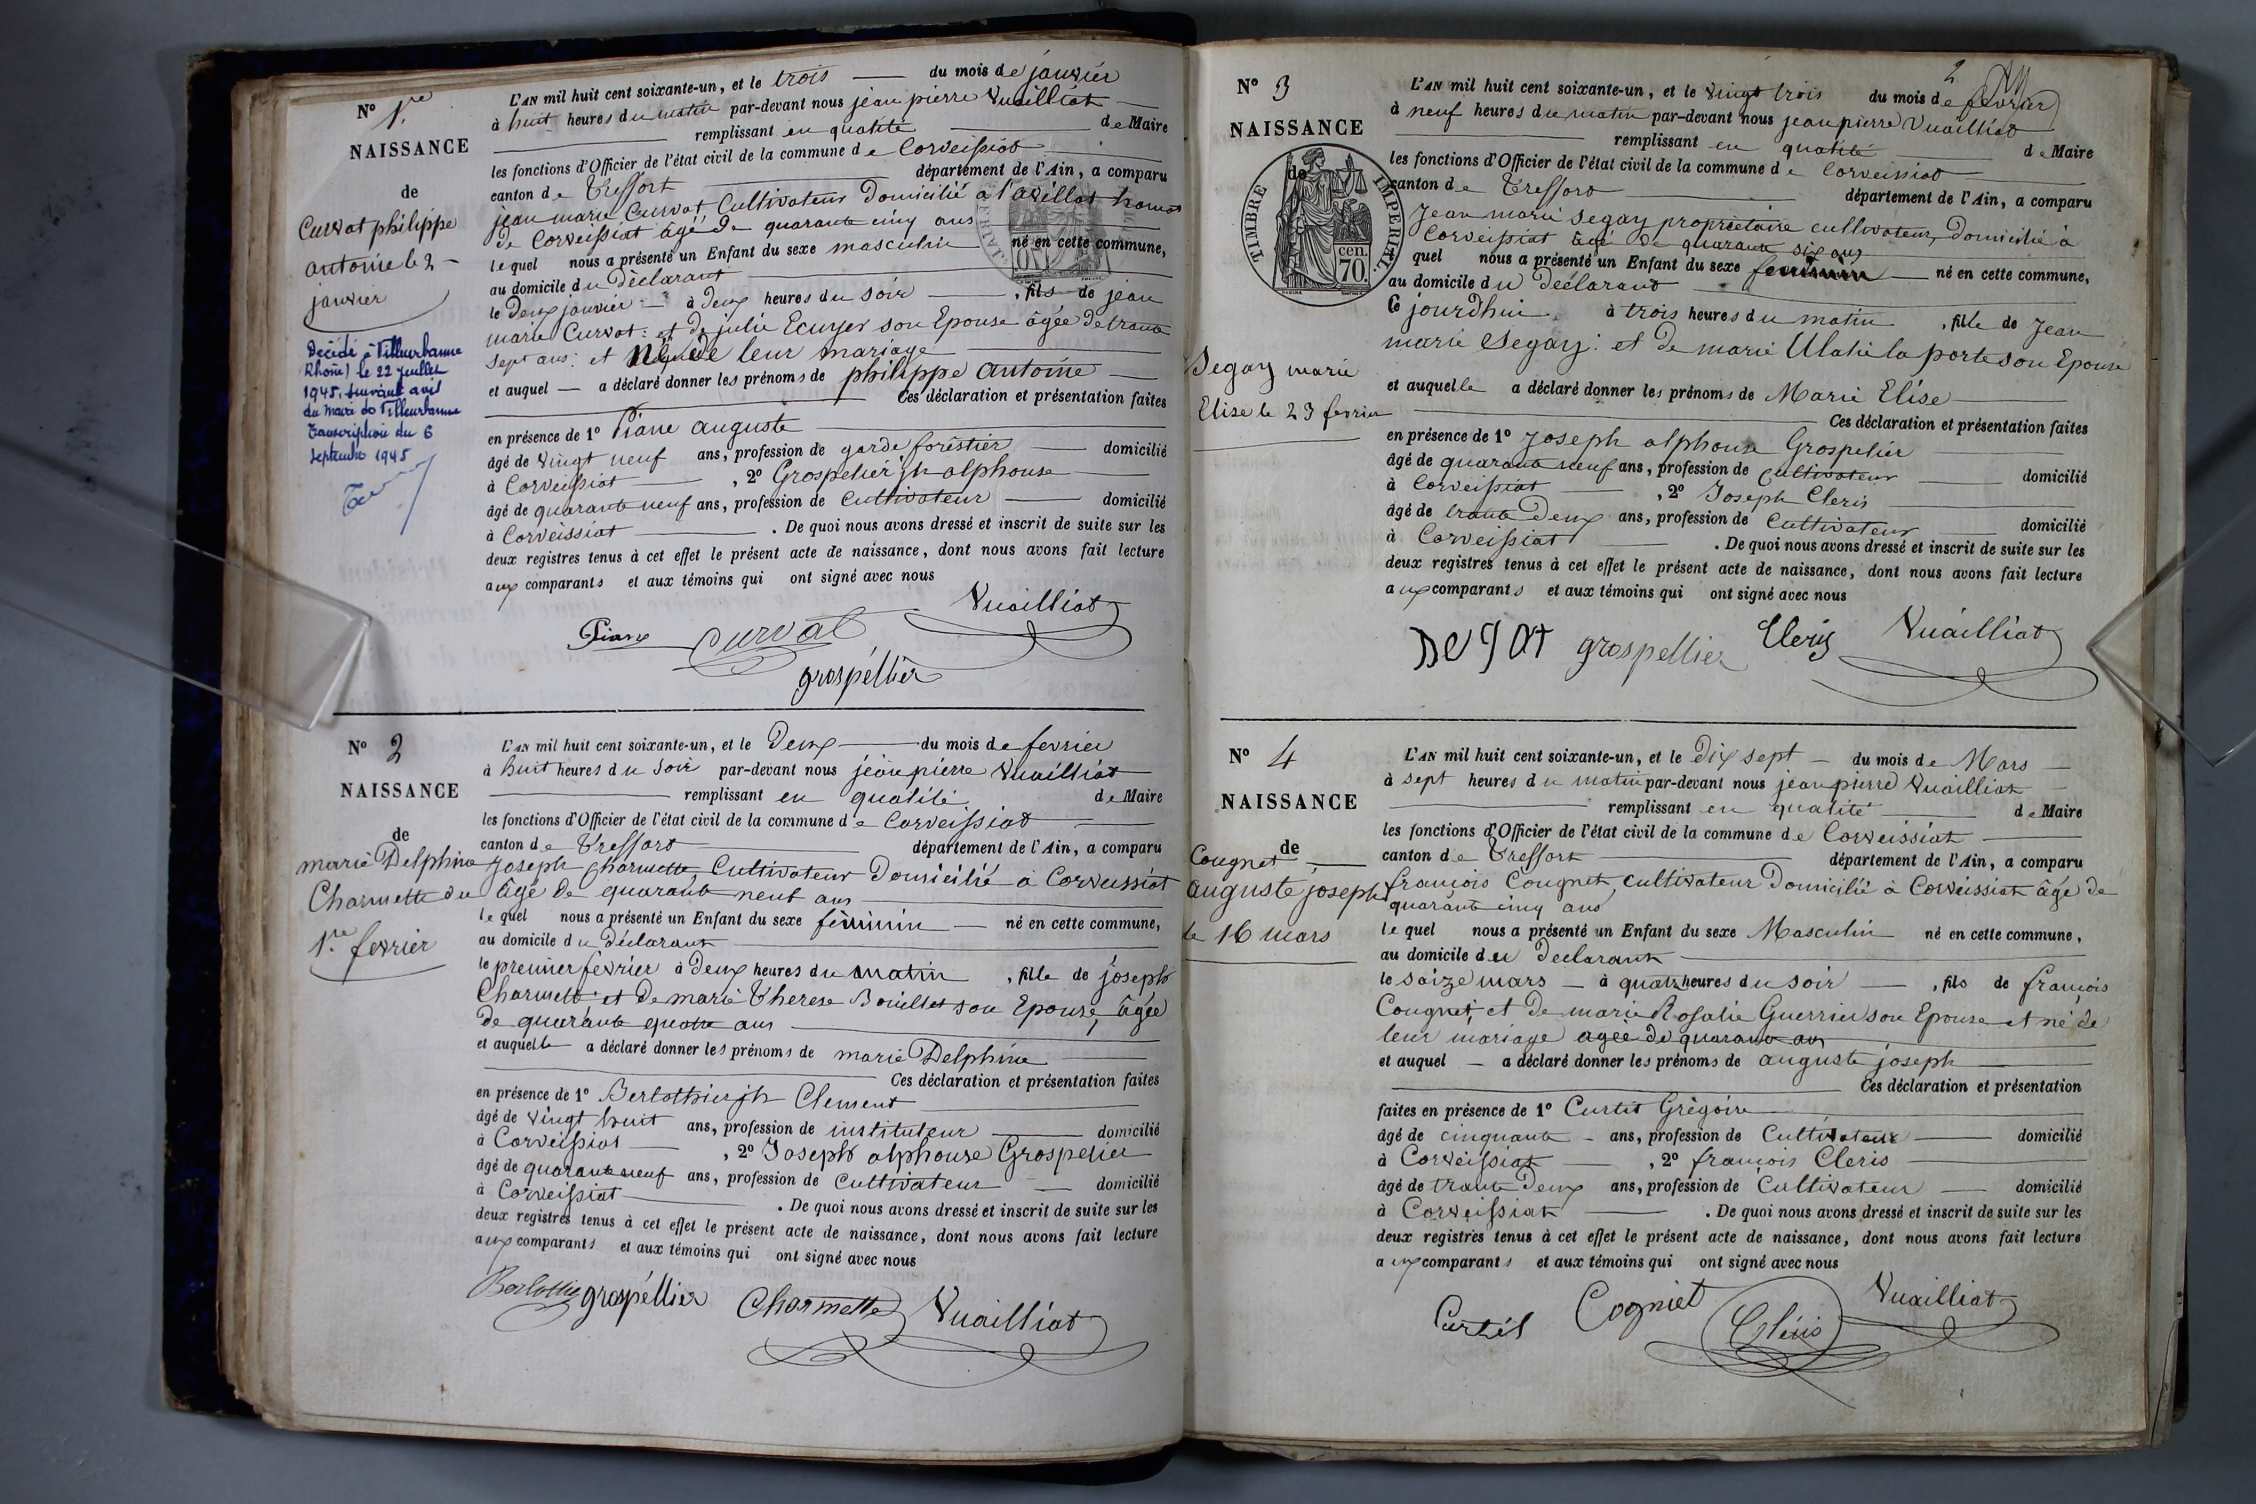 N° 1.re
NAISSANCE
de
Curvat philippe
antoine le 2
janvier
Décédé à Villeurbanne
Rhône) le 22 juillet
1945, suivant avis
du Maire de Villeurbanne
Transcription du 6
septembre 1945
L'AN mil huit cent soixante-un, et le trois du mois de janvier
à huit heures du matin par-devant nous jean pierre Vuailliat
remplissant en qualité de Maire
les fonctions d'Officier de l'état civil de la commune de Corveissiat
canton de Treffort département de l'Ain, a comparu
jean marie Curvat Cultivateur Domicilié à l'avillat hameau
de Corveissiat âgé de quarante cinq ans
lequel nous a présenté un Enfant du sexe masculin né en cette commune,
au domicile du Déclarant
le Deux janvier à Deux heures du soir, fils de jean
marie Curvat: et de julie Ecuyer son Epouse âgée de trante
sept ans: et Né de leur mariage
et auquel a déclaré donner les prénoms de philippe antoine
Ces déclaration et présentation faites
en présence de 1° Piane auguste
âgé de vingt neuf ans, profession de garde forestier domicilié
à Corveissiat, 2° Grospelier jh alphonse
âgé de quarante neuf ans, profession de Cultivateur domicilié
à Corveissiat. De quoi nous avons dressé et inscrit de suite sur les
deux registres tenus à cet effet le présent acte de naissance, dont nous avons fait lecture
aux comparants et aux témoins qui ont signé avec nous
Vuailliat
Piane Curvat
grospéllier
N° 2
NAISSANCE
de
marie Delphine
Charmette du
1.re fevrier
L'AN mil huit cent soixante-un, et le Deux du mois de fevrier
à huit heures du soir par-devant nous jean pierre Vuailliat
remplissant en qualité de Maire
les fonctions d'Officier de l'état civil de la commune de Corveissiat
canton de Treffort département de l'Ain, a comparu
Joseph Charmette, Cultivateur Domicilié à Corveissiat
âgé de quarante neuf ans
lequel nous a présenté un Enfant du sexe féminin né en cette commune,
au domicile du Déclarant
le premier février à Deux heures du matin, fille de joseph
Charmette: et de marie Therese Bouillet son Epouse, âgée
de quarante quatre ans
et auquelle a déclaré donner les prénoms de marie Delphine
Ces déclaration et présentation faites
en présence de 1° Berlothier jh Clement
âgé de vingt huit ans, profession de instituteur domicilié
à Corveissiat, 2° Joseph alphonse Grospelier
âgé de quarante neuf ans, profession de Cultivateur domicilié
à Corveissiat. De quoi nous avons dressé et inscrit de suite sur les
deux registres tenus à cet effet le présent acte de naissance, dont nous avons fait lecture
aux comparants et aux témoins qui ont signé avec nous
grospéllier Charmette Vuailliat
2
N° 3
NAISSANCE
de
TIMBRE IMPERIAL
70 cen.
Segay marie
Elise le 23 fevrier
L'AN mil huit cent soixante-un, et le vingt trois du mois de fevrier
à neuf heures du matin par-devant nous jean pierre Vuailliat
remplissant en qualité de Maire
les fonctions d'Officier de l'état civil de la commune de Corveissiat
canton de Treffort département de l'Ain, a comparu
Jean marie Segay propriétaire cultivateur, Domicilié à
Corveissiat âgé de quarante six ans
quel nous a présenté un Enfant du sexe feminin né en cette commune,
au domicile du Déclarant
Ce jourdhui à trois heures du matin, fille de Jean
marie Segay: et de marie Ulatie la porte son Epouse
et auquelle a déclaré donner les prénoms de Marie Elise
Ces déclaration et présentation faites
en présence de 1° Joseph alphonse Grospelier
âgé de quarante neuf ans, profession de Cultivateur domicilié
à Corveissiat, 2° Joseph Cleris
âgé de trante Deux ans, profession de Cultivateur domicilié
à Corveissiat. De quoi nous avons dressé et inscrit de suite sur les
deux registres tenus à cet effet le présent acte de naissance, dont nous avons fait lecture
aux comparants et aux témoins qui ont signé avec nous
grospellier Cleris Vuailliat
N° 4
NAISSANCE
de
Cougnet
auguste joseph
le 16 mars
L'AN mil huit cent soixante-un, et le Dix sept du mois de Mars
à sept heures du matin par-devant nous jean pierre Vuailliat
remplissant en qualité de Maire
les fonctions d'Officier de l'état civil de la commune de Corveissiat
canton de Treffort département de l'Ain, a comparu
françois Cougnet, cultivateur Domicilié à Corveissiat âgé de
quarante cinq ans
lequel nous a présenté un Enfant du sexe Masculin né en cette commune,
au domicile du Déclarant
le saize mars à quatre heures du soir, fils de françois
Cougnet, et de marie Rosalie Guerrier son Epouse et né de
leur mariage agée de quarante ans
et auquel a déclaré donner les prénoms de auguste joseph
Ces déclaration et présentation
faites en présence de 1° Curtit Grégoire
âgé de cinquante ans, profession de Cultivateur domicilié
à Corveissiat, 2° françois Cleris
âgé de trante Deux ans, profession de Cultivateur domicilié
à Corveissiat. De quoi nous avons dressé et inscrit de suite sur les
deux registres tenus à cet effet le présent acte de naissance, dont nous avons fait lecture
aux comparants et aux témoins qui ont signé avec nous
Curtil Cogniet Cléris Vuailliat